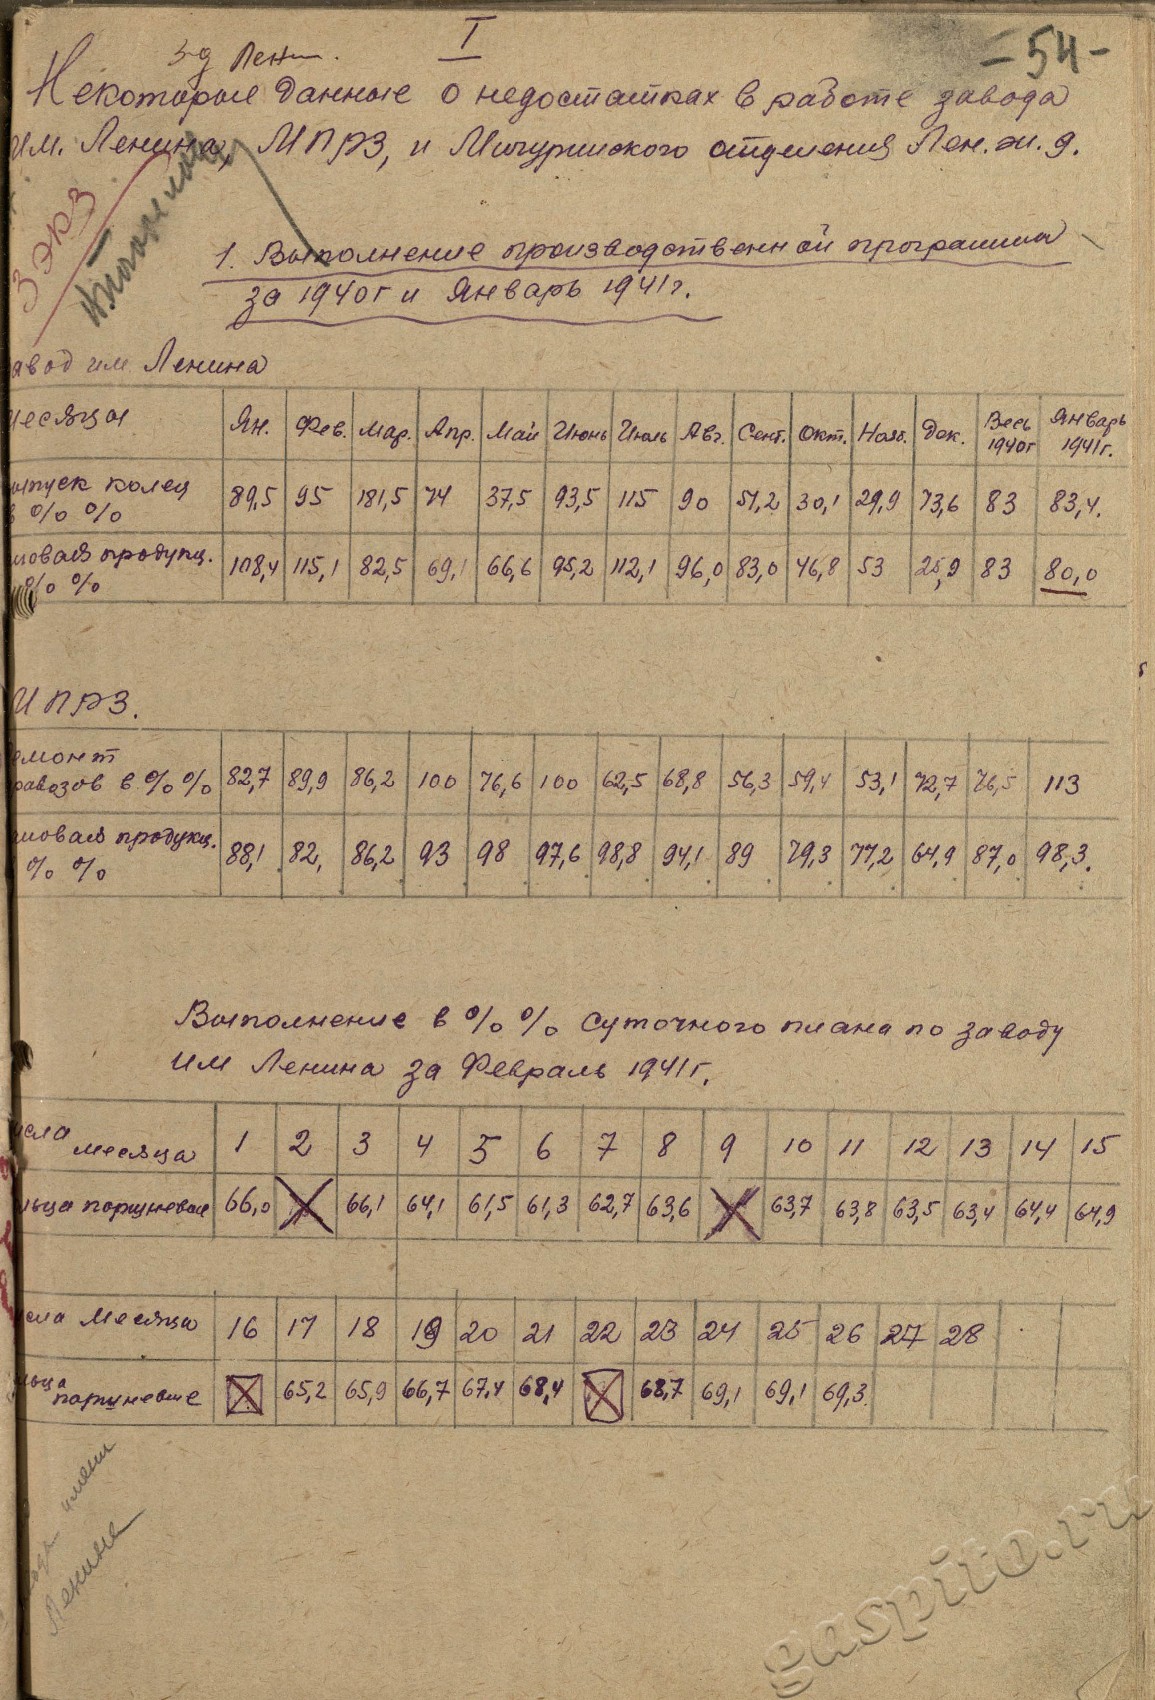 I
з-д Лен
- 54 -
Некоторые данные о недостатках в работе завода
им. Ленина, МПРЗ, и Мичуринского отделения Лен. ж. д.
3 экз
1. Выполнение производственной программы
за 1940г и Январь 1941г.
авод им Ленина
месяцы Ян. Фев. Мар. Апр. Май Июнь Июль Авг. Сент. Окт. Нояб. Дек. Весь 1940г Январь 1941г.
ыпуск колец в % % 89,5 95 181,5 74 37,5 93,5 115 90 51,2 30,1 29,9 73,6 83 83,4.
ловая продукц. % % 108,4 115,1 82,5 69,1 66,6 95,2 112,1 96,0 83,0 46,8 53 25,9 83 80,0
МПРЗ.
емонт равозов в % % 82,7 89,9 86,2 100 76,6 100 62,5 68,8 56,3 59,4 53,1 72,7 76,5 113
ловая продукц. % % 88,1 82, 86,2 93 98 97,6 98,8 94,1 89 79,3 77,2 64,9 87,0 98,3.
Выполнение в % % суточного плана по заводу
им Ленина за Февраль 1941г.
исла месяца 1 2 3 4 5 6 7 8 9 10 11 12 13 14 15
льца поршневые 66,0 X 66,1 64,1 61,5 61,3 62,7 63,6 X 63,7 63,8 63,5 63,4 64,4 64,9
исла месяца 16 17 18 19 20 21 22 23 24 25 26 27 28
льца поршневые X 65,2 65,9 66,7 67,4 68,4 X 68,7 69,1 69,1 69,3
имени
Ленина
gaspito.ru